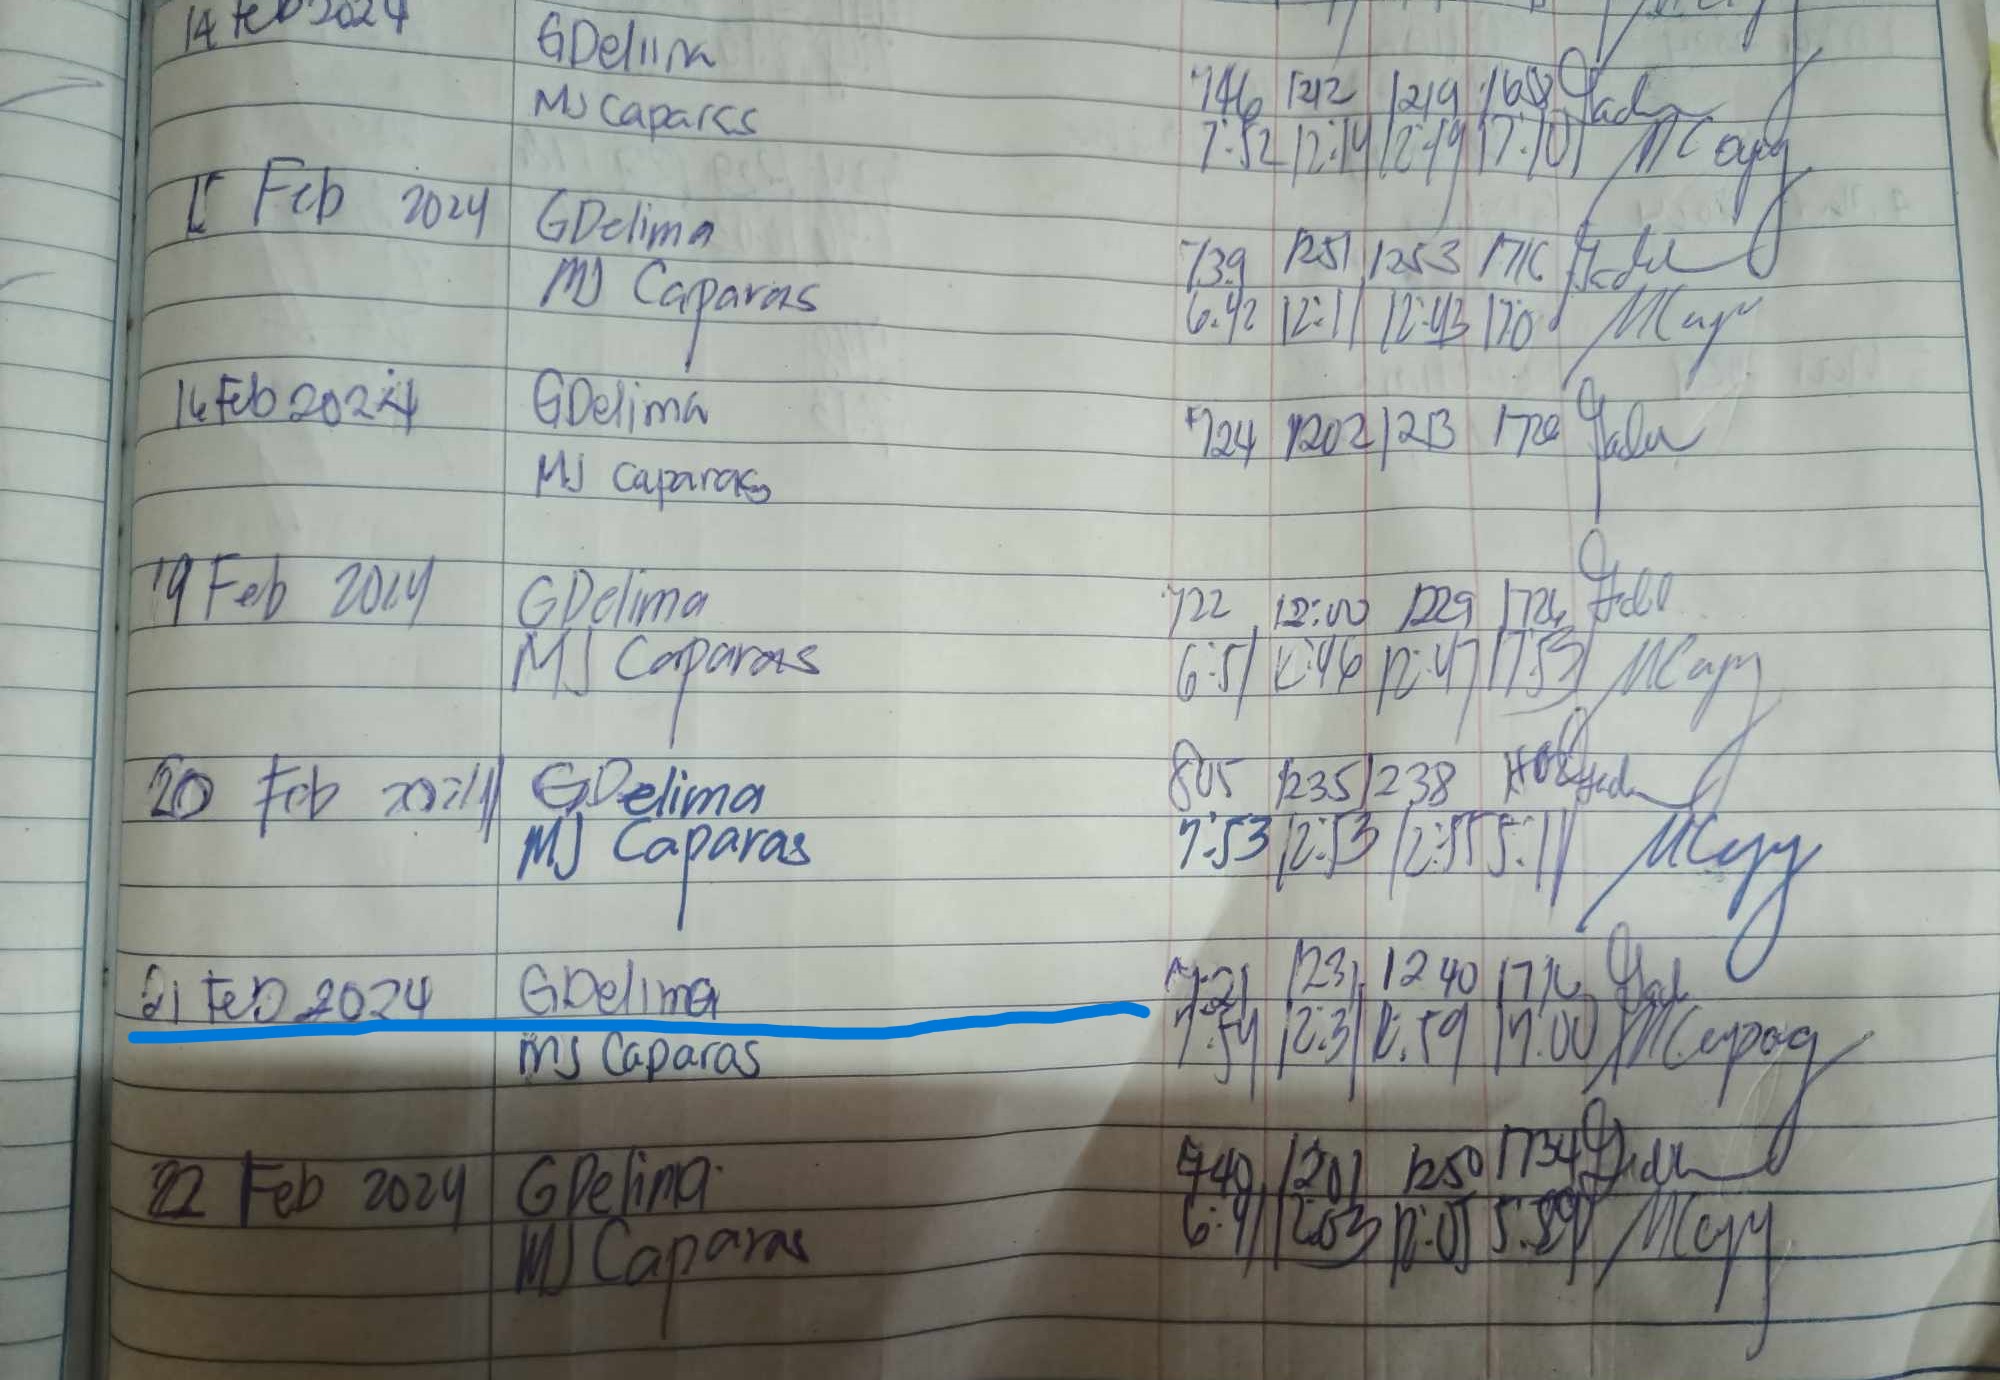 14 Feb 2024 GDelima 746 1212 1219 1658
MJ Caparas 7:52 12:14 12:19 17:10
Feb 2024 GDelima 739 1251 1253 1716
MJ Caparas 6:42 12:11 12:43 170
16 Feb 2024 GDelima 724 1202 1213
MJ Caparas
19 Feb 2024 GDelima 722 12:00 1229 1726
MJ Caparas 6:51 12:46 12:47 17:53
20 Feb 2024 GDelima 805 1235 1238
MJ Caparas 7:53 12:53 12:55 5:11
21 Feb 2024 GDelima 721 1231 1240 1716
MJ Caparas 7:54 12:31 12:59 17:00
22 Feb 2024 GDelima 740 1201 1250 1734
MJ Caparas 6:41 12:03 12:05